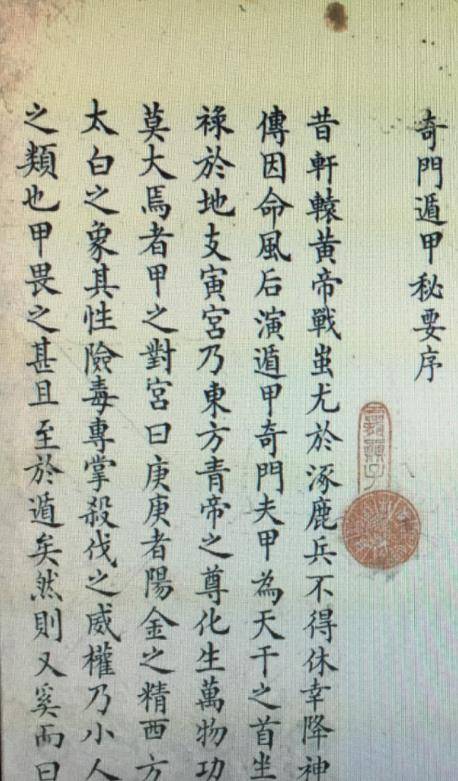 奇門遁甲秘要序
昔軒轅黃帝戰蚩尤於涿鹿兵不得休幸降神
傳因命風后演遁甲奇門夫甲為天干之首坐
祿於地支寅宮乃東方青帝之尊化生萬物功
莫大焉者甲之對宮曰庚庚者陽金之精西方
太白之象其性險毒專掌殺伐之威權乃小人
之類也甲畏之甚且至於遁矣然則又奚而曰